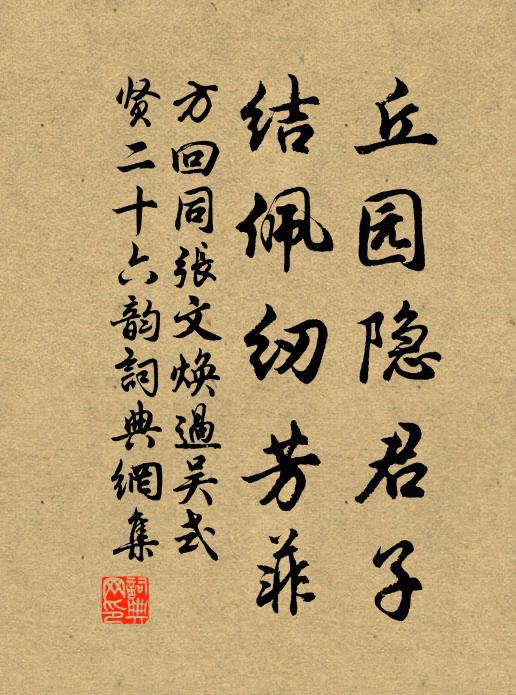 丘园隐君子
结佩纫芳菲
方回同張文焕過吴式
贤二十六韵詞典網集
詞典网印